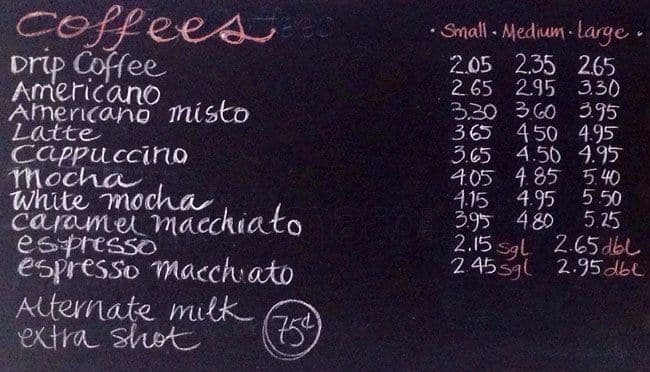 Coffees · Small · Medium · Large ·
Drip Coffee 2.05 2.35 2.65
Americano 2.65 2.95 3.30
Americano misto 3.30 3.60 3.95
Latte 3.65 4.50 4.95
Cappuccino 3.65 4.50 4.95
mocha 4.05 4.85 5.40
White mocha 4.15 4.95 5.50
caramel macchiato 3.95 4.80 5.25
espresso 2.15 sgl 2.65 dbl
espresso macchiato 2.45 sgl 2.95 dbl
Alternate milk
extra shot 75¢